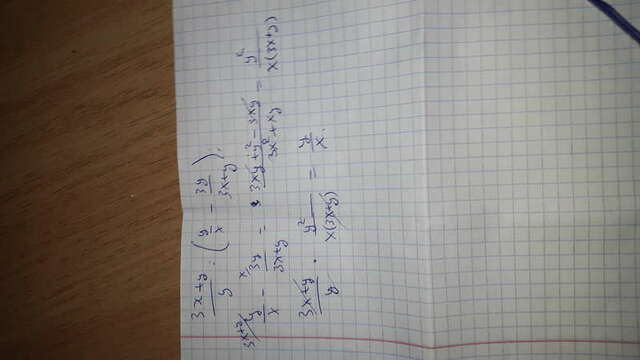 (3x+y)/y : (y/x − 3y/(3x+y)).
3x+y y/x − x 3y/(3x+y) = (3xy+y²−3xy)/(3x²+xy) = y²/(x(3x+y))
(3x+y)/y · y²/(x(3x+y)) = y/x.